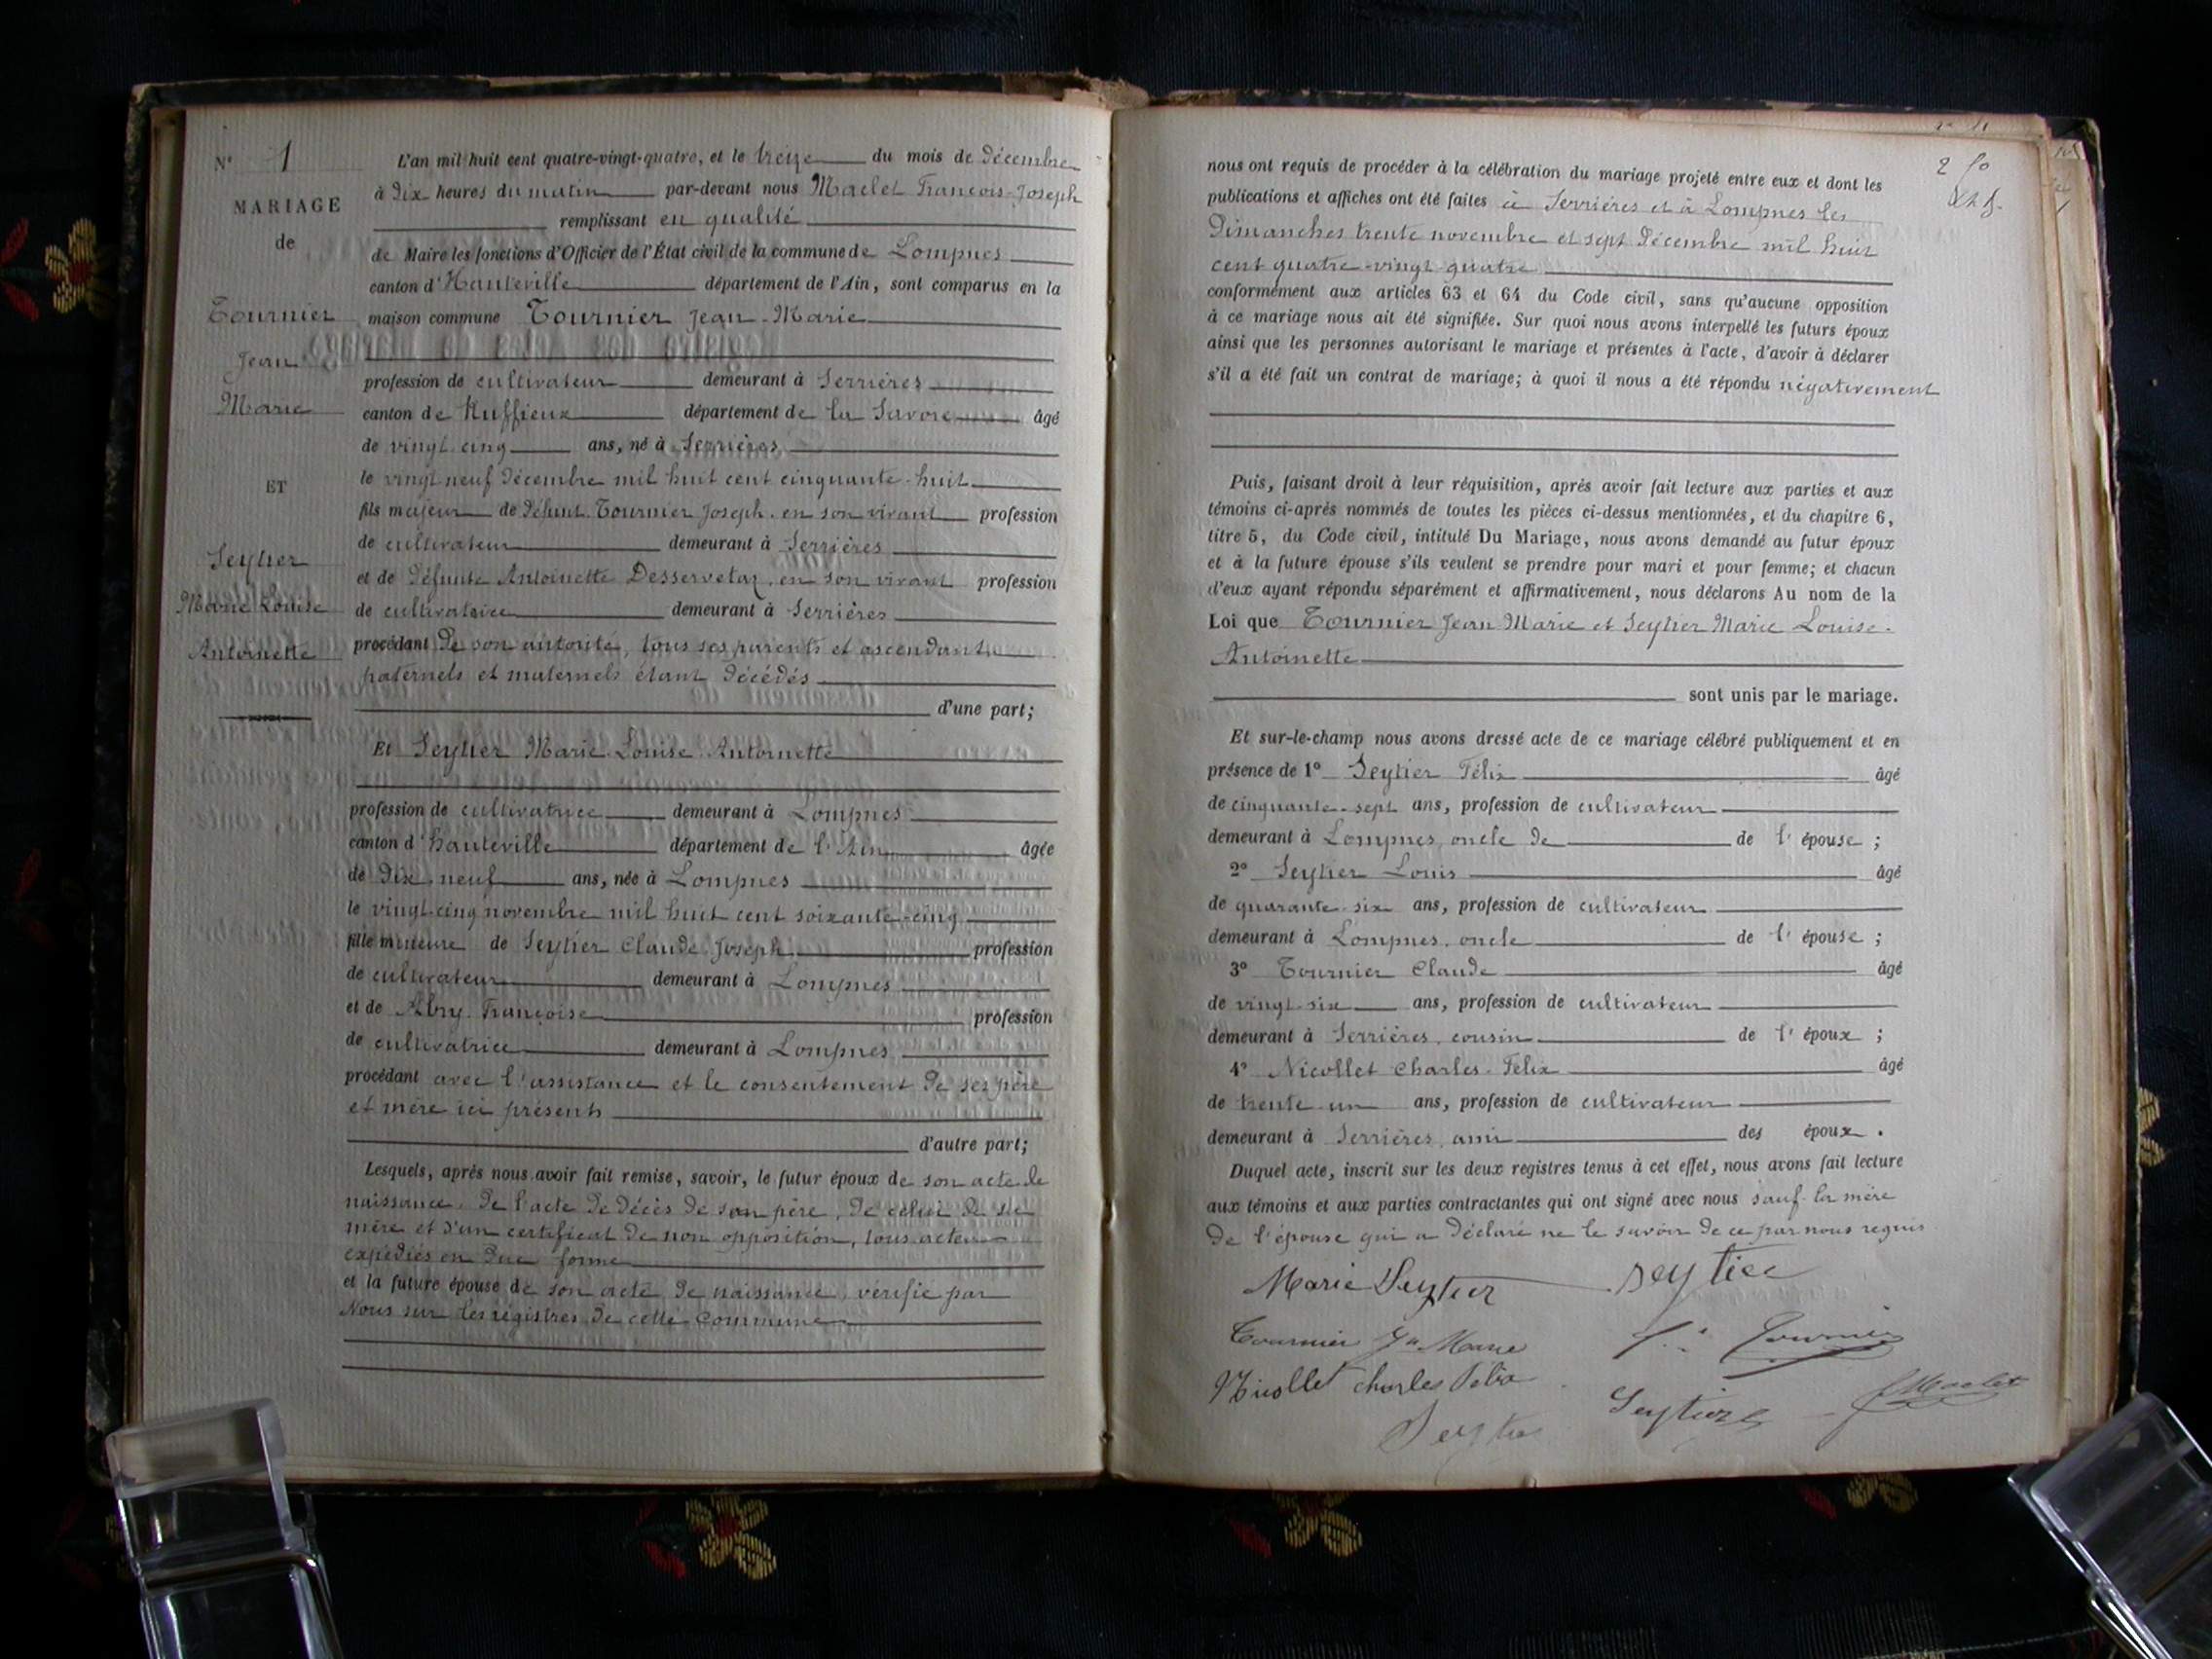 N° 1
MARIAGE
de
Tournier
Jean
Marie
ET
Seytier
Marie Louise
Antoinette
L'an mil huit cent quatre-vingt-quatre, et le treize du mois de Décembre
à Dix heures du matin par-devant nous Maclet François-Joseph
remplissant en qualité
de Maire les fonctions d'Officier de l'État civil de la commune de Lompnes
canton d'Hauteville département de l'Ain, sont comparus en la
maison commune Tournier Jean-Marie
profession de cultivateur demeurant à Serrières
canton de Ruffieux département de la Savoie âgé
de vingt cinq ans, né à Serrières
le vingt neuf Décembre mil huit cent cinquante-huit
fils majeur de défunt Tournier Joseph, en son vivant profession
de cultivateur demeurant à Serrières
et de Défunte Antoinette Desservetaz, en son vivant profession
de cultivatrice demeurant à Serrières
procédant De son autorité, tous ses parents et ascendants
paternels et maternels étant Décédés
d'une part;
Et Seytier Marie-Louise-Antoinette
profession de cultivatrice demeurant à Lompnes
canton d'hauteville département de l'Ain âgée
de Dix-neuf ans, née à Lompnes
le vingt-cinq novembre mil huit cent soixante-cinq
fille mineure de Seytier Claude-Joseph profession
de cultivateur demeurant à Lompnes
et de Abry Françoise profession
de cultivatrice demeurant à Lompnes
procédant avec l'assistance et le consentement De ses père
et mère ici présents
d'autre part;
Lesquels, après nous avoir fait remise, savoir, le futur époux de son acte de
naissance, De l'acte De décès de son père, De celui De sa
mère et d'un certificat De non opposition, tous actes
expédiés en Due forme
et la future épouse de son acte De naissance, vérifié par
Nous sur les régistres De cette Commune
2 50
nous ont requis de procéder à la célébration du mariage projeté entre eux et dont les
publications et affiches ont été faites à Serrières et à Lompnes les
Dimanches trente novembre et sept Décembre mil huit
cent quatre-vingt-quatre
conformément aux articles 63 et 64 du Code civil, sans qu'aucune opposition
à ce mariage nous ait été signifiée. Sur quoi nous avons interpellé les futurs époux
ainsi que les personnes autorisant le mariage et présentes à l'acte, d'avoir à déclarer
s'il a été fait un contrat de mariage; à quoi il nous a été répondu négativement
Puis, faisant droit à leur réquisition, après avoir fait lecture aux parties et aux
témoins ci-après nommés de toutes les pièces ci-dessus mentionnées, et du chapitre 6,
titre 5, du Code civil, intitulé Du Mariage, nous avons demandé au futur époux
et à la future épouse s'ils veulent se prendre pour mari et pour femme; et chacun
d'eux ayant répondu séparément et affirmativement, nous déclarons Au nom de la
Loi que Tournier Jean-Marie et Seytier Marie Louise-
Antoinette
sont unis par le mariage.
Et sur-le-champ nous avons dressé acte de ce mariage célébré publiquement et en
présence de 1° Seytier Félix âgé
de cinquante-sept ans, profession de cultivateur
demeurant à Lompnes, oncle De de l'épouse;
2° Seytier Louis âgé
de quarante-six ans, profession de cultivateur
demeurant à Lompnes, oncle de l'épouse;
3° Tournier Claude âgé
de vingt-six ans, profession de cultivateur
demeurant à Serrières, cousin de l'époux;
4° Nicollet Charles-Félix âgé
de trente un ans, profession de cultivateur
demeurant à Serrières, ami des époux.
Duquel acte, inscrit sur les deux registres tenus à cet effet, nous avons fait lecture
aux témoins et aux parties contractantes qui ont signé avec nous sauf la mère
De l'épouse qui a déclaré ne le savoir de ce par nous requis
Marie Seytier Seytier
Tournier Jn Marie Tournier
Nicollet charles Félix Maclet
Seytier Seytier